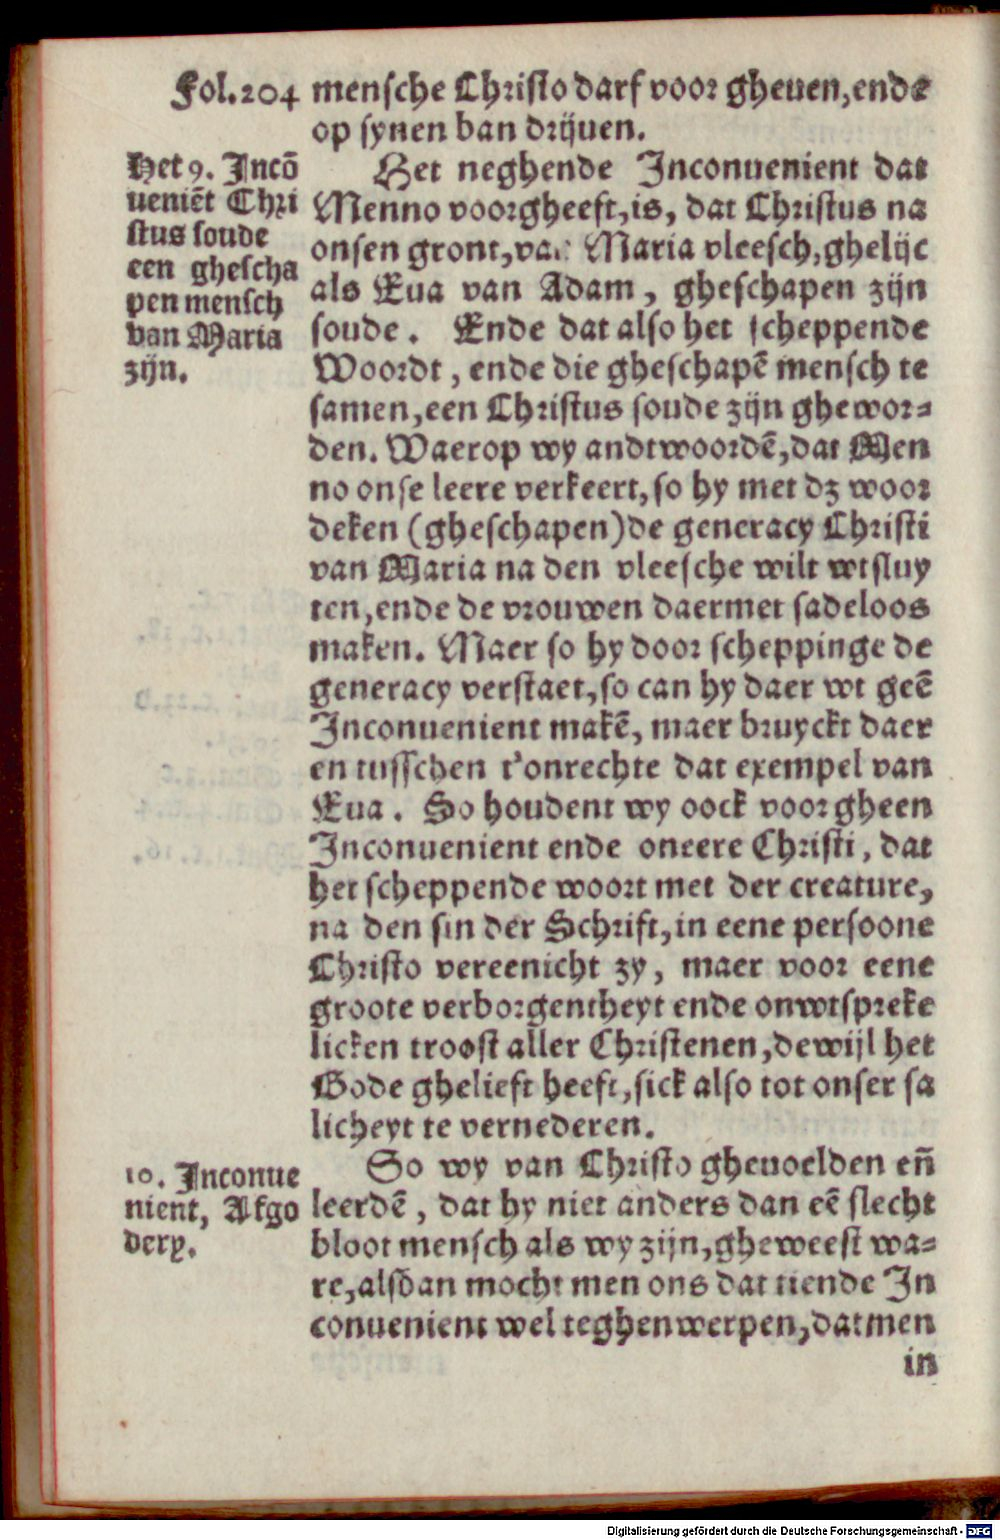 Fol.204
mensche Christo darf voor gheuen,ende
op synen ban drijuen.
Het 9. Incō
ueniēt Chri
stus soude
een ghescha
pen mensch
van Maria
zijn.
Het neghende Inconuenient dat
Menno voorgheeft,is, dat Christus na
onsen gront,van Maria vleesch,ghelijc
als Eua van Adam, gheschapen zijn
soude. Ende dat also het scheppende
Woordt, ende die gheschapē mensch te
samen,een Christus soude zijn ghewor=
den. Waerop wy andtwoordē,dat Men
no onse leere verkeert,so hy met dz woor
deken (gheschapen)de generacy Christi
van Maria na den vleesche wilt wtsluy
ten,ende de vrouwen daermet sadeloos
maken. Maer so hy door scheppinge de
generacy verstaet,so can hy daer wt geē
Inconuenient makē, maer bruyckt daer
en tusschen t'onrechte dat exempel van
Eua. So houdent wy oock voor gheen
Inconuenient ende oneere Christi, dat
het scheppende woort met der creature,
na den sin der Schrift,in eene persoone
Christo vereenicht zy, maer voor eene
groote verborgentheyt ende onwtspreke
licken troost aller Christenen,dewijl het
Gode ghelieft heeft,sick also tot onser sa
licheyt te vernederen.
10. Inconue
nient, Afgo
dery.
So wy van Christo gheuoelden eñ
leerdē, dat hy niet anders dan eē slecht
bloot mensch als wy zijn,gheweest wa=
re,alsdan mocht men ons dat tiende In
conuenient wel teghenwerpen,datmen
in
Digitalisierung gefördert durch die Deutsche Forschungsgemeinschaft - DFG